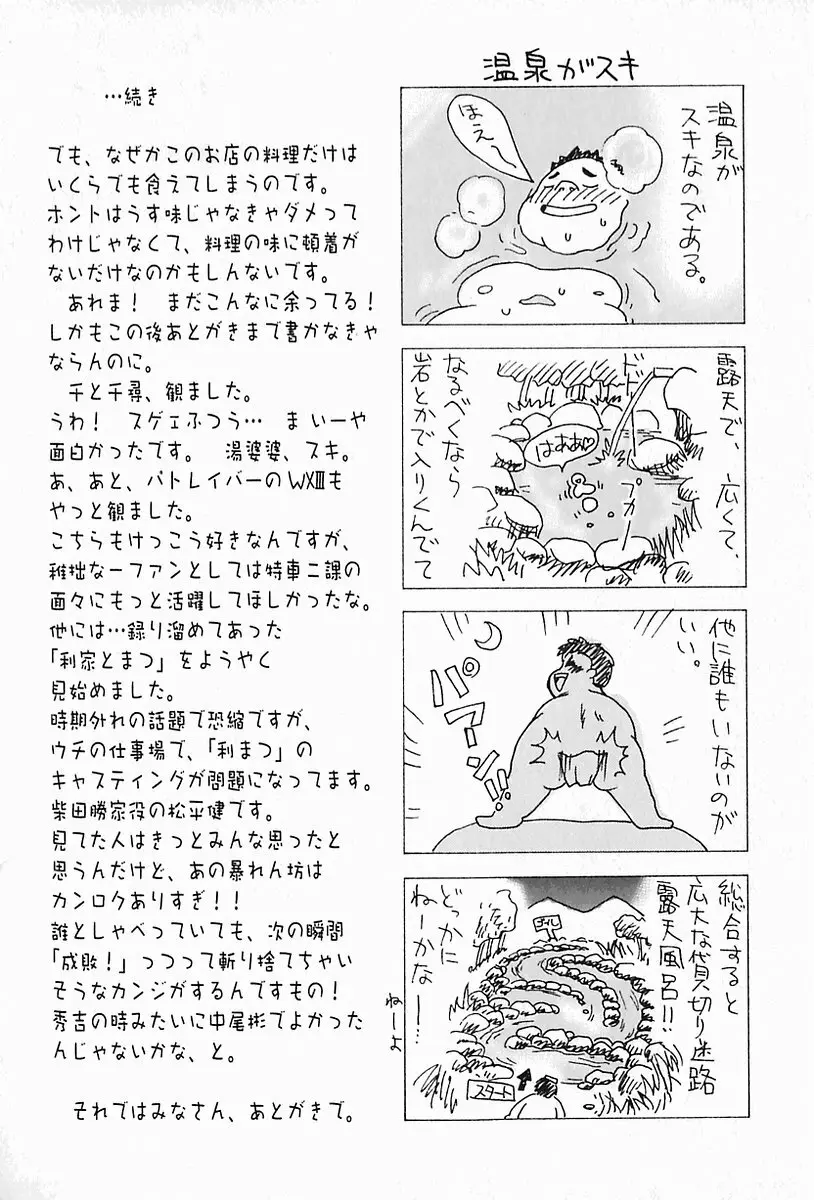 温泉がスキ
温泉が
スキなのである。
ほえ〜
露天で、広くて、
なるべくなら
岩とかで入りくんでて
ドド
はぁあ♡
プカ
他に誰もいないのが
いい。
パアーン!!
総合すると
広大な貸切り迷路
露天風呂!!
どっかに
ねーかな
ー…
ねーよ
ゴール
スタート
…続き
でも、なぜかこのお店の料理だけは
いくらでも食えてしまうのです。
ホントはうす味じゃなきゃダメって
わけじゃなくて、料理の味に頓着が
ないだけなのかもしんないです。
あれま！ まだこんなに余ってる！
しかもこの後あとがきまで書かなきゃ
ならんのに。
千と千尋、観ました。
うわ！ スゲェふつう… ま いーや
面白かったです。 湯婆婆、スキ。
あ、あと、パトレイバーのWXⅢも
やっと観ました。
こちらもけっこう好きなんですが、
稚拙な一ファンとしては特車二課の
面々にもっと活躍してほしかったな。
他には…録り溜めてあった
「利家とまつ」をようやく
見始めました。
時期外れの話題で恐縮ですが、
ウチの仕事場で、「利まつ」の
キャスティングが問題になってます。
柴田勝家役の松平健です。
見てた人はきっとみんな思ったと
思うんだけど、あの暴れん坊は
カンロクありすぎ！！
誰としゃべっていても、次の瞬間
「成敗！」つつって斬り捨てちゃい
そうなカンジがするんですもの！
秀吉の時みたいに中尾彬でよかった
んじゃないかな、と。
それではみなさん、あとがきで。